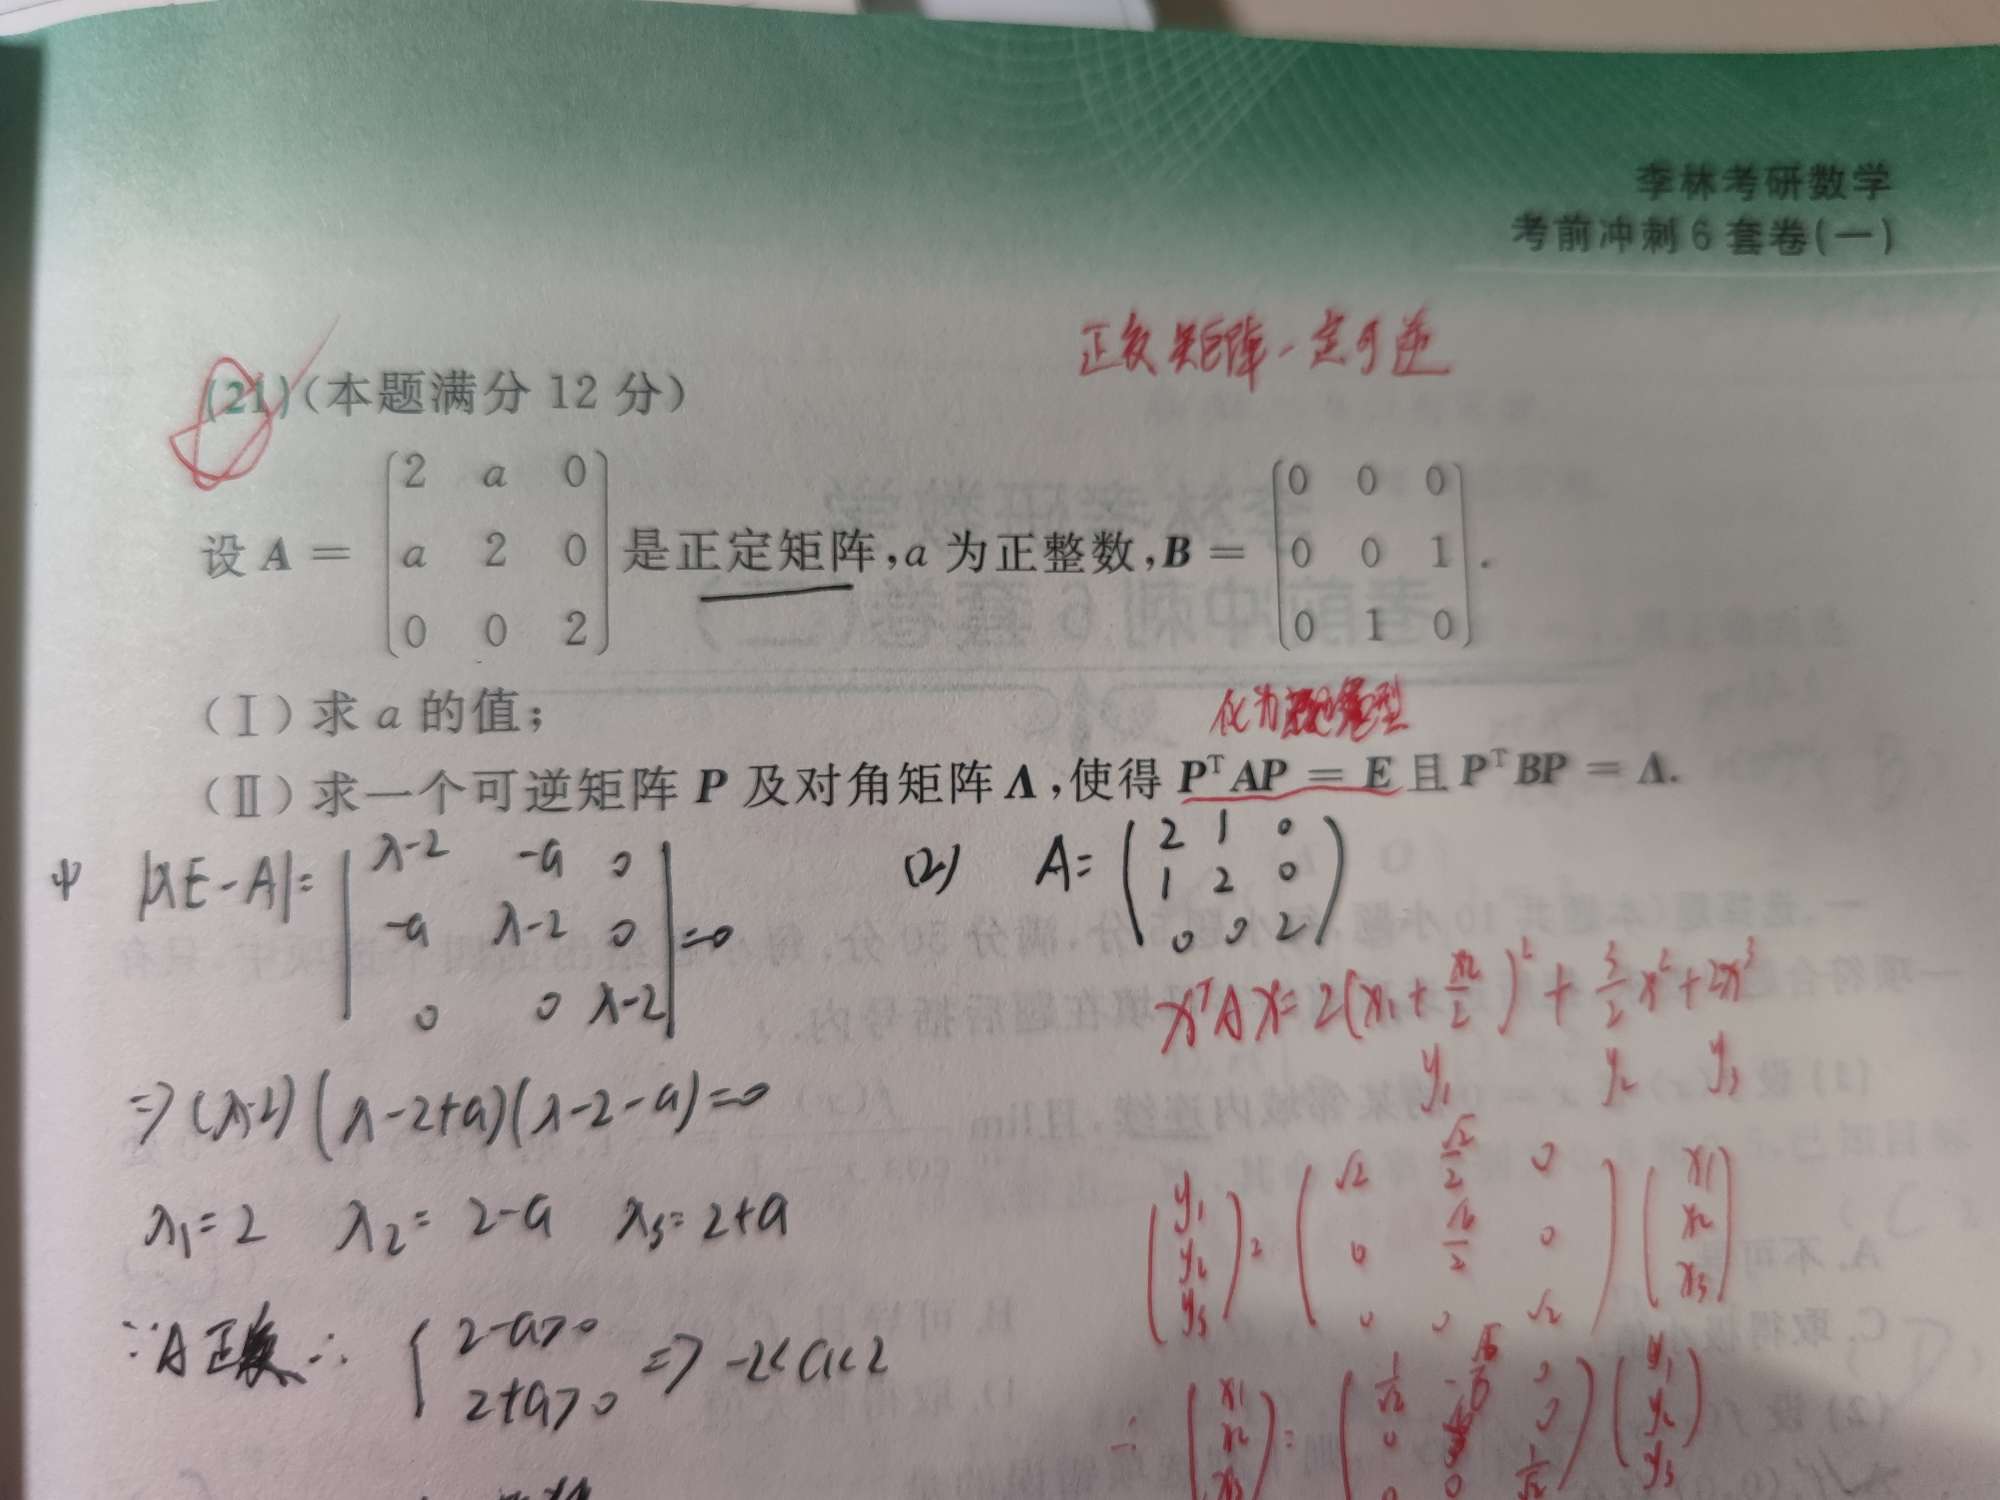 李林考研数学
考前冲刺6套卷(一)
正定矩阵一定可逆
(21)(本题满分 12 分)
设 A = [2 a 0; a 2 0; 0 0 2] 是正定矩阵,a 为正整数,B = [0 0 0; 0 0 1; 0 1 0].
(Ⅰ)求 a 的值;
化为
(Ⅱ)求一个可逆矩阵 P 及对角矩阵 Λ,使得 PᵀAP = E 且 PᵀBP = Λ.
|λE-A|= |λ-2 -a 0; -a λ-2 0; 0 0 λ-2| =0
⇒(λ-2)(λ-2+a)(λ-2-a)=0
λ₁=2 λ₂= 2-a λ₃=2+a
∵A 正定 ∴ {2-a>0 2+a>0 ⇒ -2<a<2
(2) A= (2 1 0; 1 2 0; 0 0 2)
xᵀAx= 2(x₁+x₂/2)² + 3/2x²+2x³
y₁ y₂ y₃
(y₁ y₂ y₃) = (√2 √2/2 0; 0 √6/2 0; 0 0 √2)(x₁ x₂ x₃)
∴ (x₁ x₂ x₃) = (1/√2 -√6/6 0; 0 0; 0 1/√2)(y₁ y₂ y₃)